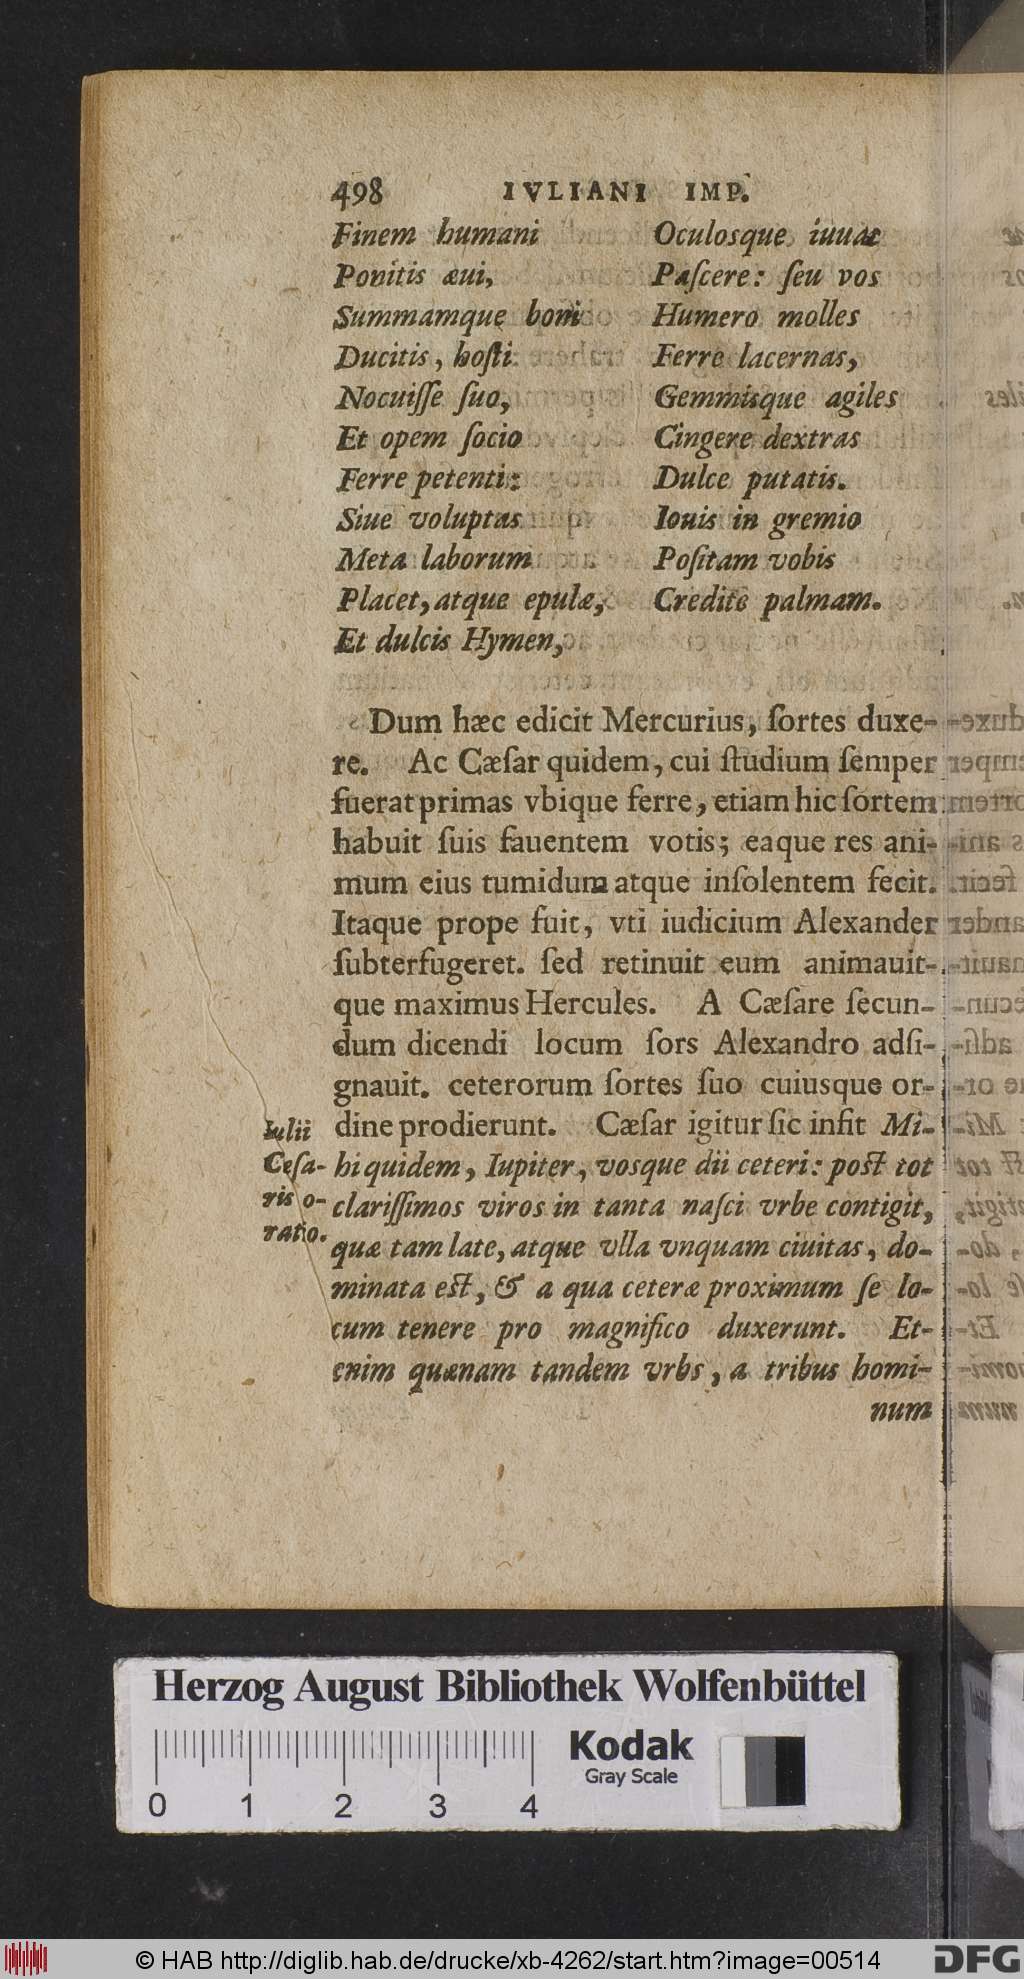 498 IVLIANI IMP.
Finem humani
Ponitis æui,
Summamque boni
Ducitis, hosti
Nocuiſſe ſuo,
Et opem ſocio
Ferre petenti:
Siue voluptas
Meta laborum
Placet, atque epulæ,
Et dulcis Hymen,
Oculosque iuuat
Paſcere: ſeu vos
Humero molles
Ferre lacernas,
Gemmisque agiles
Cingere dextras
Dulce putatis.
Iouis in gremio
Poſitam vobis
Credite palmam.
Dum hæc edicit Mercurius, ſortes duxe-
re. Ac Cæſar quidem, cui ſtudium ſemper
fuerat primas vbique ferre, etiam hic ſortem
habuit ſuis fauentem votis; eaque res ani-
mum eius tumidum atque inſolentem fecit.
Itaque prope fuit, vti iudicium Alexander
ſubterfugeret. ſed retinuit eum animauit-
que maximus Hercules. A Cæſare ſecun-
dum dicendi locum ſors Alexandro adſi-
gnauit. ceterorum ſortes ſuo cuiusque or-
dine prodierunt. Cæſar igitur ſic infit Mi-
hi quidem, Iupiter, vosque dii ceteri: poſt tot
clariſſimos viros in tanta naſci vrbe contigit,
quæ tam late, atque vlla vnquam ciuitas, do-
minata eſt, & a qua ceteræ proximum ſe lo-
cum tenere pro magnifico duxerunt. Et-
enim quænam tandem vrbs, a tribus homi-
num
Iulii
Ceſa-
ris o-
ratio.
Herzog August Bibliothek Wolfenbüttel
Kodak
Gray Scale
0 1 2 3 4
© HAB http://diglib.hab.de/drucke/xb-4262/start.htm?image=00514
DFG